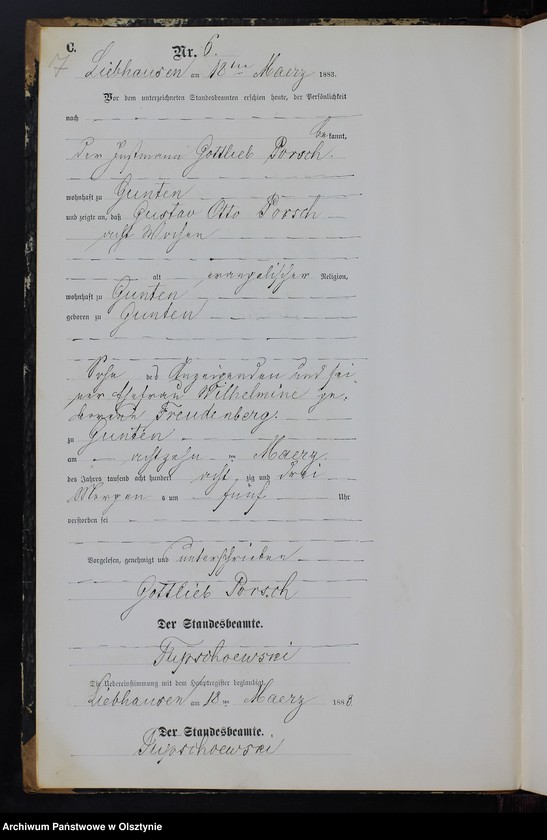 C.
Nr. 6.
7
Liebhausen am 18ten Maerz 1883.
Vor dem unterzeichneten Standesbeamten erschien heute, der Persönlichkeit
nach
be kannt,
der Instmann Gottlieb Porsch.
wohnhaft zu Gunten
und zeigte an, daß Gustav Otto Porsch
acht Wochen
alt evangelischer Religion,
wohnhaft zu Gunten
geboren zu Gunten
Sohn des Anzeigenden und sei
ner Ehefrau Wilhelmine ge-
borene Freudenberg.
zu Gunten
am achtzehn ten Maerz
des Jahres tausend acht hundert acht zig und drei
Morgens um fünf Uhr
verstorben sei
Vorgelesen, genehmigt und unterschrieben
Gottlieb Porsch
Der Standesbeamte.
Die Uebereinstimmung mit dem Hauptregister beglaubigt.
Liebhausen am 18ten Maerz 1883
Der Standesbeamte.
Archiwum Państwowe w Olsztynie